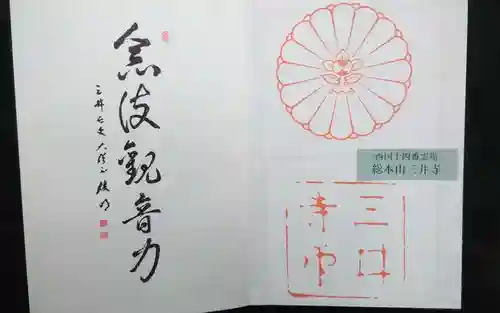 念彼觀音力
三井長吏大僧正俊明
西国十四番霊場
総本山三井寺
三井
寺印